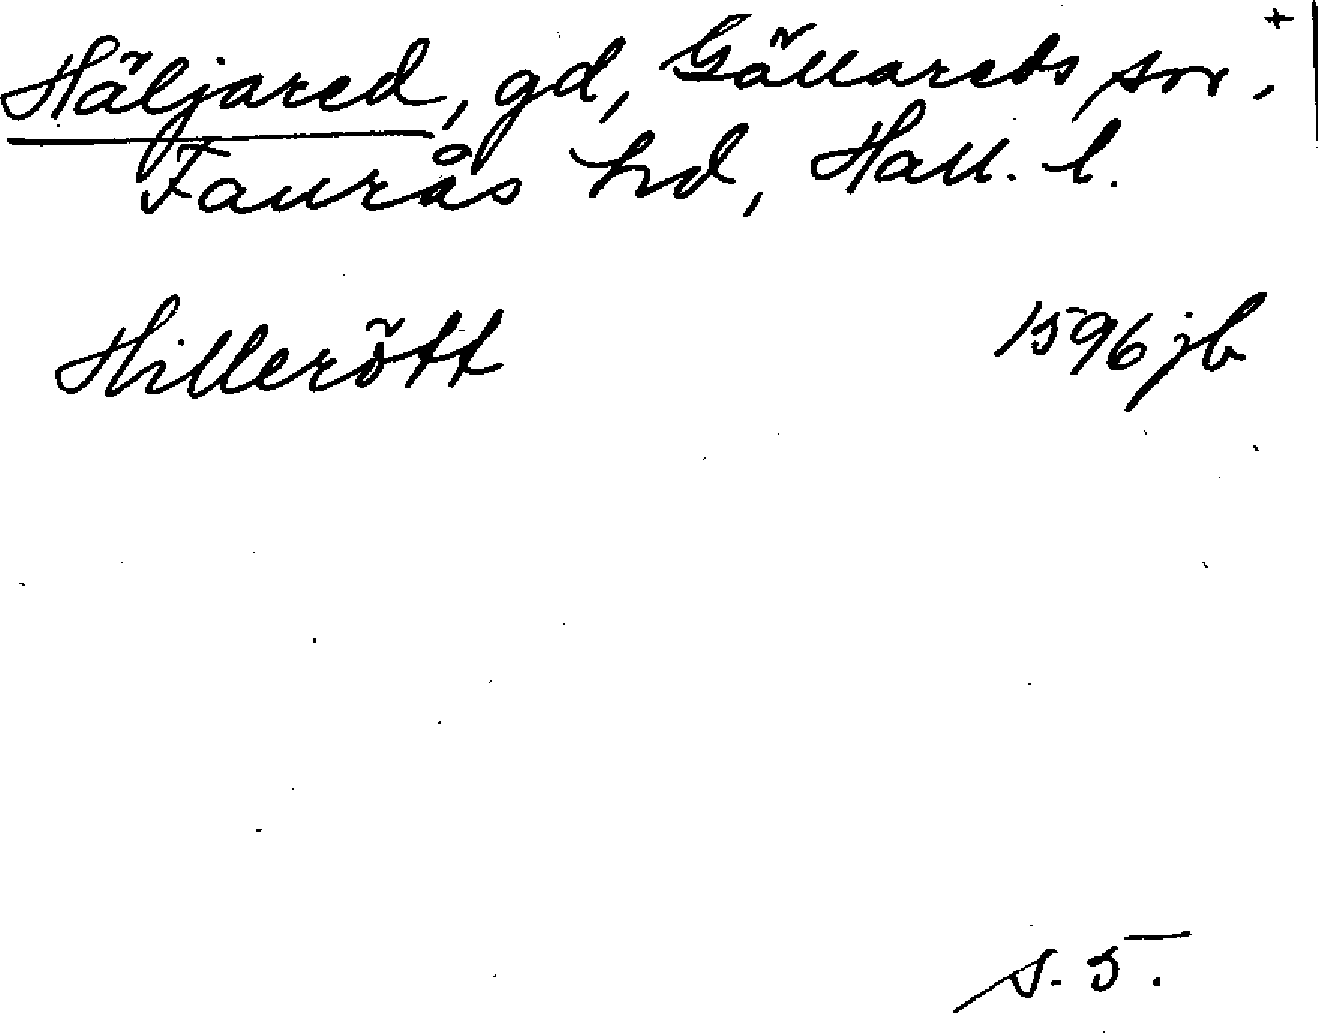 Häljared, gd, Gällareds sn, +
Faurås hd, Hall. l.
Hillerött 1596 jb
s. 5.